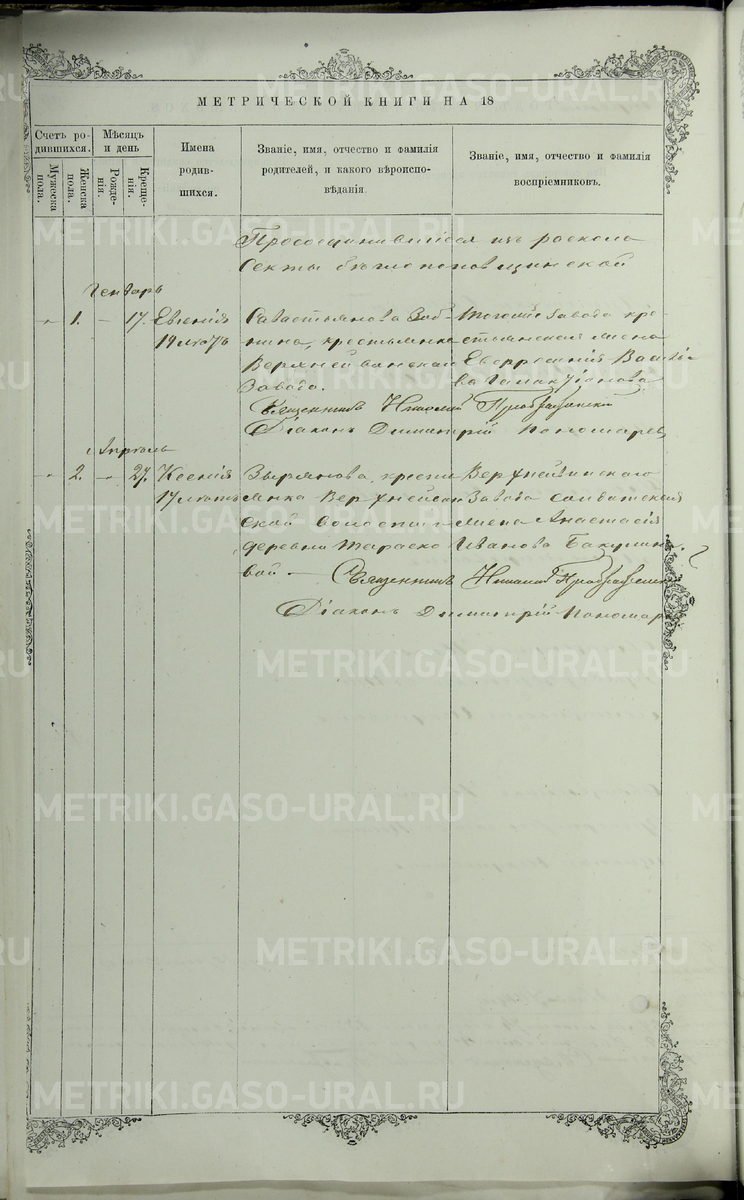 МЕТРИЧЕСКОЙ КНИГИ НА 18
Счетъ ро-
дившихся.
Мужеска
пола.
Женска
пола.
Мѣсяцъ
и день
Рожде-
нія.
Креще-
нія.
Имена
родив-
шихся.
Званіе, имя, отчество и фамилія
родителей, и какого вѣроиспо-
вѣданія.
Званіе, имя, отчество и фамилія
воспріемниковъ.
изъ раскола
Секты бѣглопоповщинской
Генварь
1. – 17. Евгенія
19 лѣтъ
Савастьянова
крестьянка
Верхнейвинскаго
Завода.
Тогоже Завода кре-
стьянская жена
Василье
ва
Священникъ Николай Преображенскій
Діаконъ Димитрій Пономаревъ
Апрѣль
2. – 27. Ксенія
17 лѣтъ
Зырянова, кресть
янка Верхнейвин
ской волости
деревни Тараско
вой –
Верхнейвинскаго
Завода солдатская
жена Анастасія
Иванова
Священникъ Николай Преображенскій
Діаконъ Димитрій Пономарев
METRIKI.GASO-URAL.RU